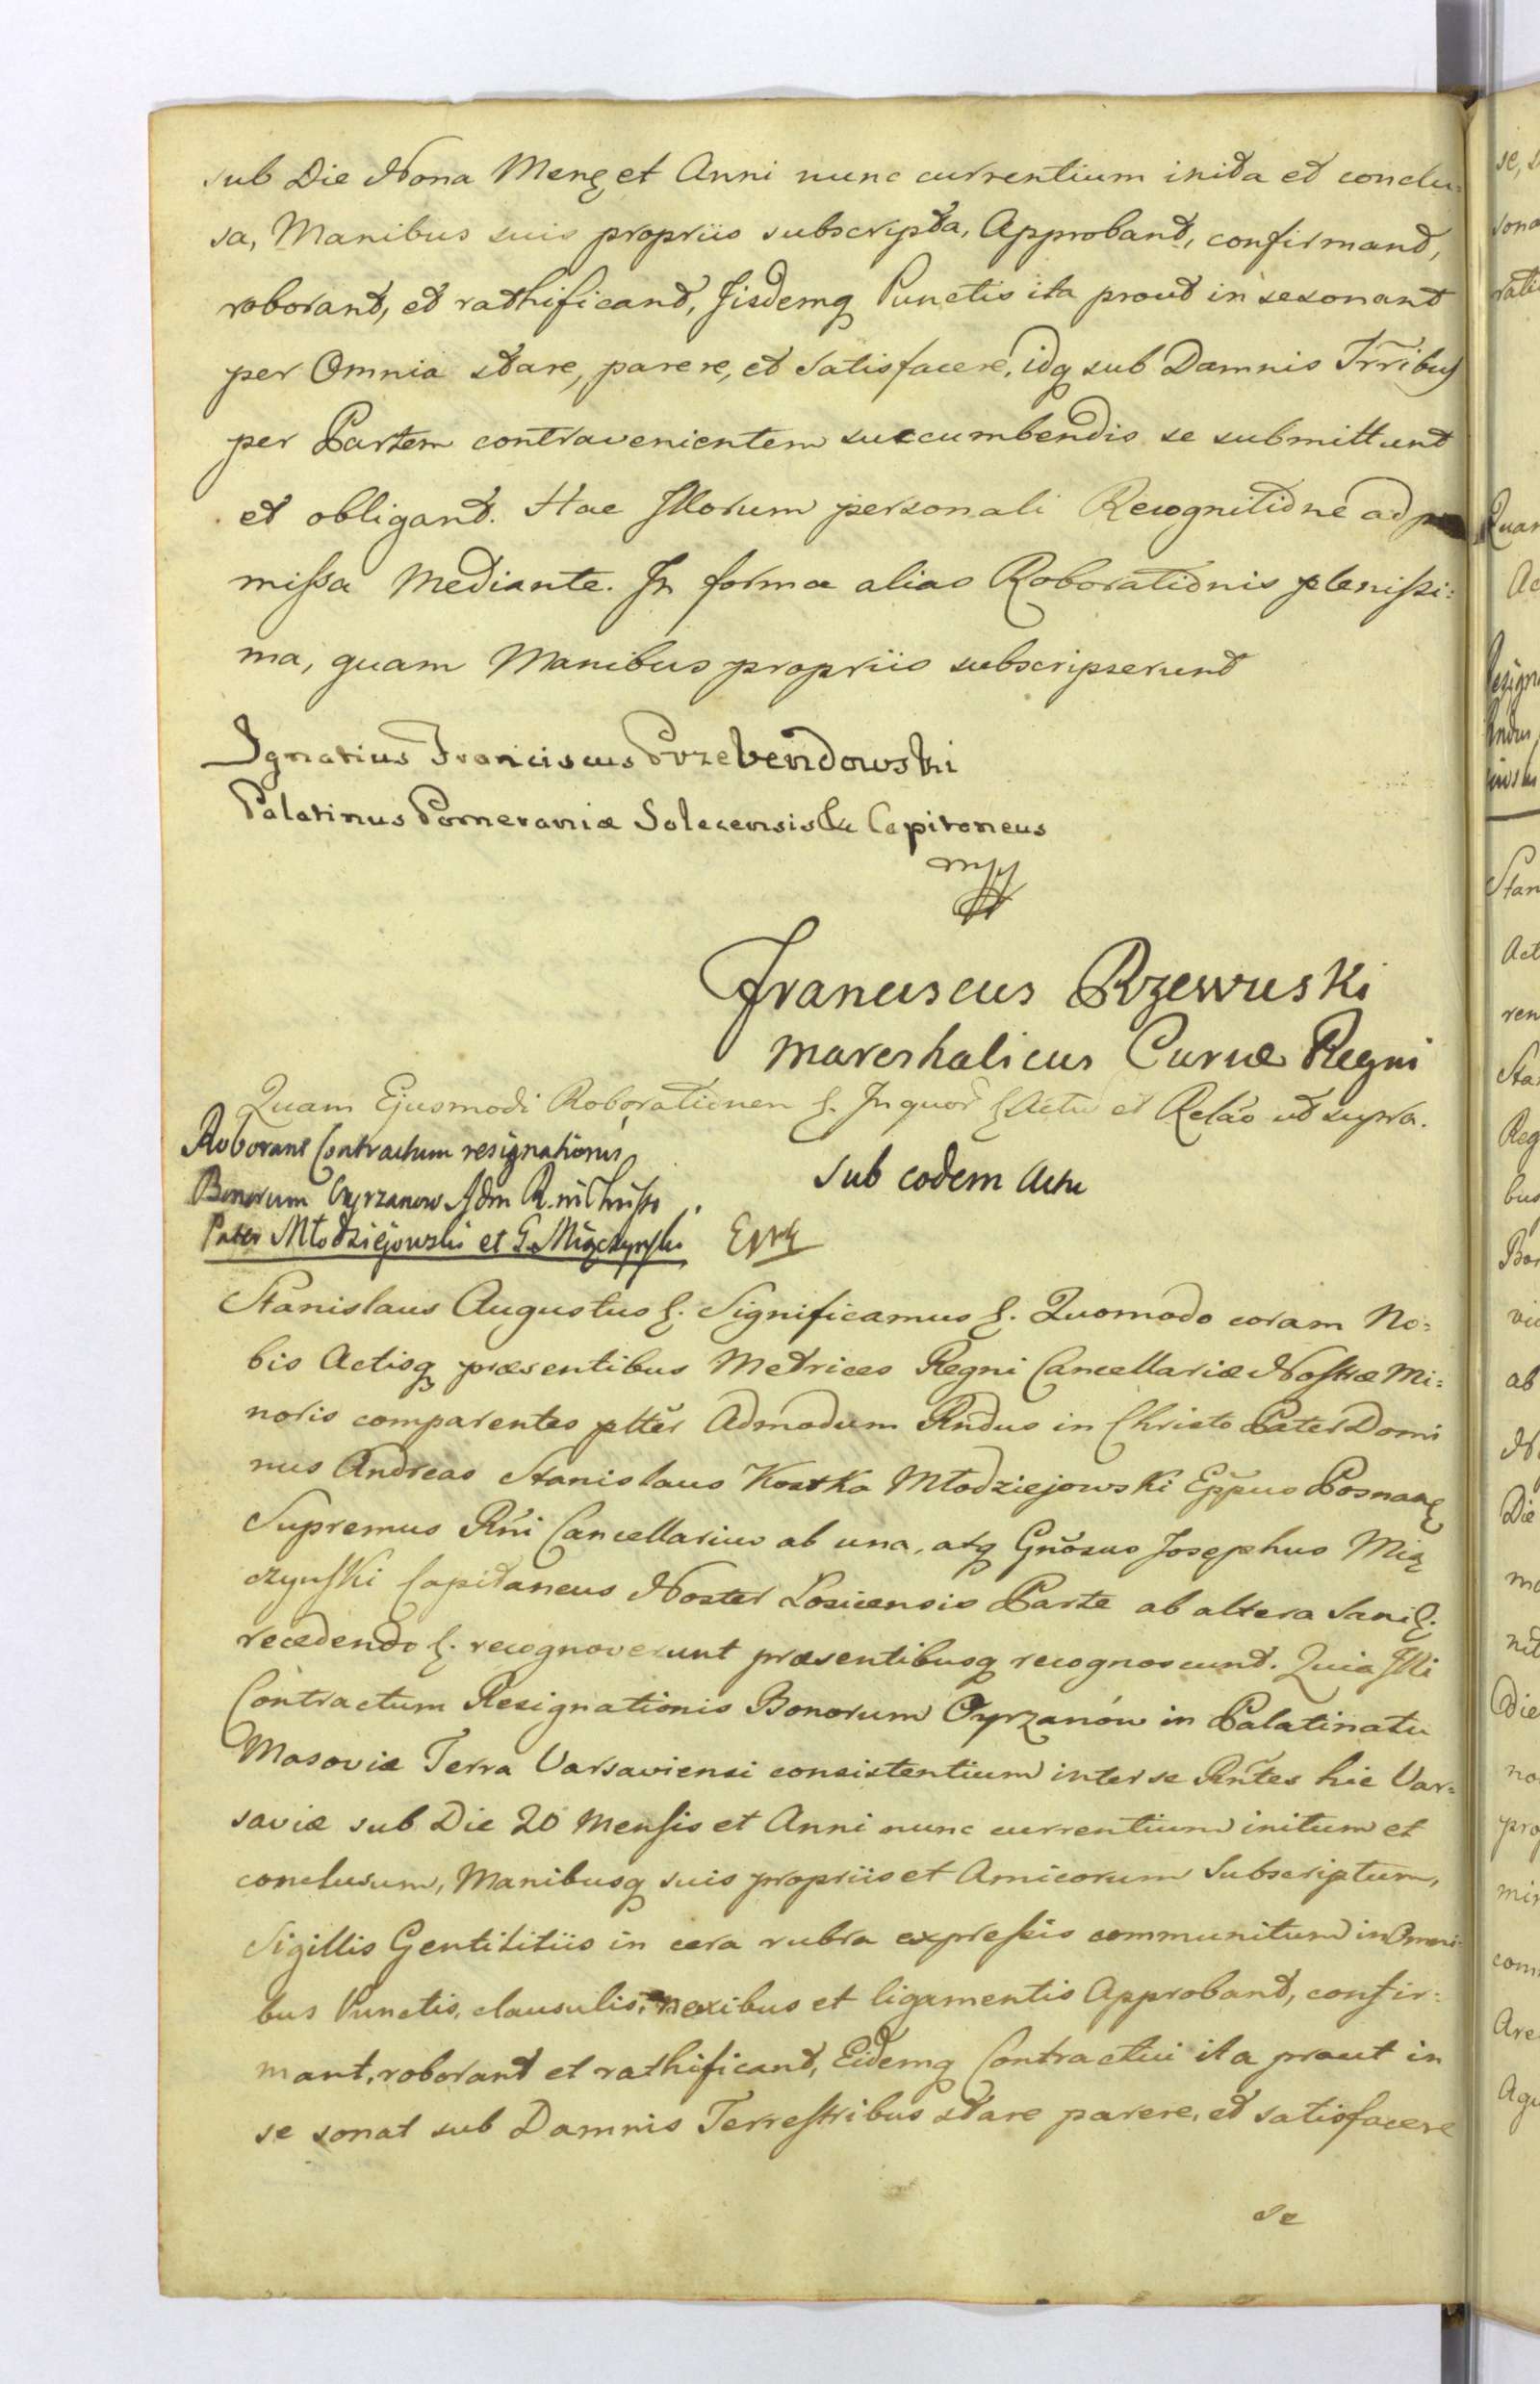 sub Die Nona Mens et Anni nunc currentium inita et conclu=
sa, Manibus suis propriis subscripta, Approbant, confirmant,
roborant, et rathificant, Iisdemq Punctis ita prout in se sonant
per Omnia stare, parere, et satisfacere, idq sub Damnis Trribus
per Partem contravenientem succumbendis se submittunt
et obligant. Hac Illorum personali Recognitione ad præ
missa Mediante. In forma alias Roborationis plenissi:
ma, quam Manibus propriis subscripserunt
Ignatius Franciscus Przebendowski
Palatinus Pomeraniæ Solecensis & Capitaneus
mp
Franciscus Rzewuski
Mareshalicus Curiæ Regni
Quam Ejusmodi Roborationem &. In quor & Actu et Relao ut supra.
Roborant Contractum resignationis
Bonorum Oyrzanow Adm R. in Christo
Pater Młodziejowski et G. Miączynski
Sub eodem Actu
Stanislaus Augustus &. Significamus &. Quomodo coram No=
bis Actisq præsentibus Metrices Regni Cancellariæ Nostræ Mi=
noris comparentes pltter Admodum Rndus in Christo Pater Domi
nus Andreas Stanislaus Kostka Młodziejowski Eppus Posnans
Supremus Rni Cancellarius ab una, atq Gnosus Josephus Mią
czynski Capitaneus Noster Losicensis Parte ab altera Sani &.
recedendo &. recognoverunt præsentibusq recognoscunt. Quia Illi
Contractum Resignationis Bonorum Oyrzanów in Palatinatu
Masoviæ Terra Varsaviensi consistentium inter se Rntes hic Var=
saviæ sub Die 20 Mensis et Anni nunc currentium initum et
conclusum, Manibusq suis propriis et Amicorum Subscriptum,
Sigillis Gentilitiis in cera rubra expressis communitum in Omni
bus Punctis, clausulis, nexibus et ligamentis Approbant, confir=
mant, roborant et rathificant, Eidemq Contractui ita prout in
se sonat sub Damnis Terrestribus stare parere, et satisfacere
se